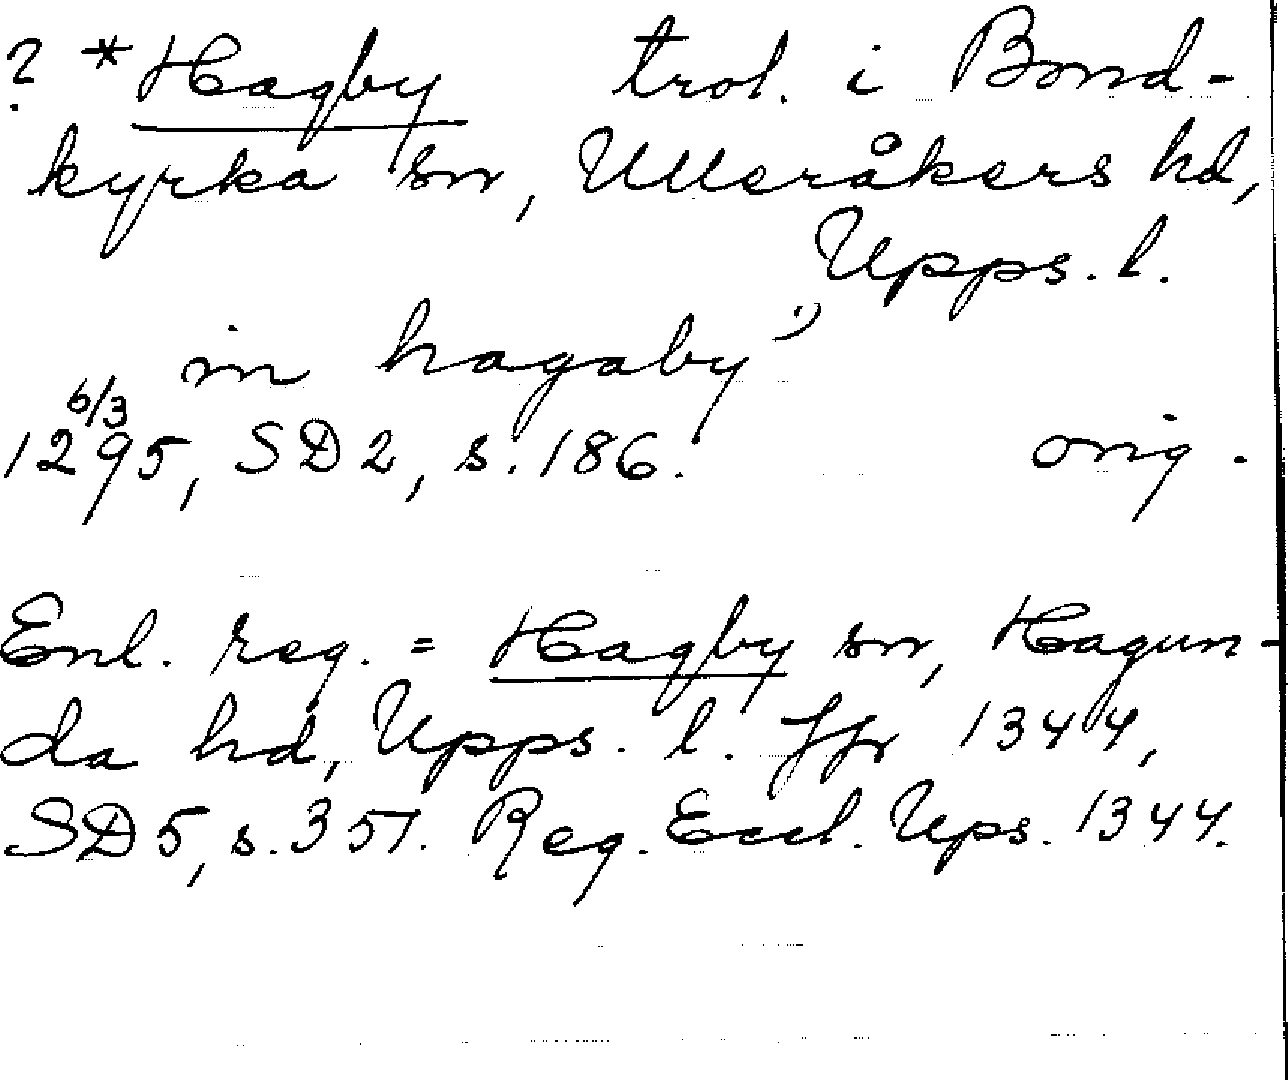 ? *Hagby trol. i Bond-
kyrka sn, Ulleråkers hd,
Upps. l.
in hagaby
6/3
1295, SD 2, s. 186. orig.
Enl. reg. = Hagby sn, Hagun-
da hd, Upps. l. Jfr 1344,
SD 5, s. 351. Reg. Eccl. Ups. 1344.